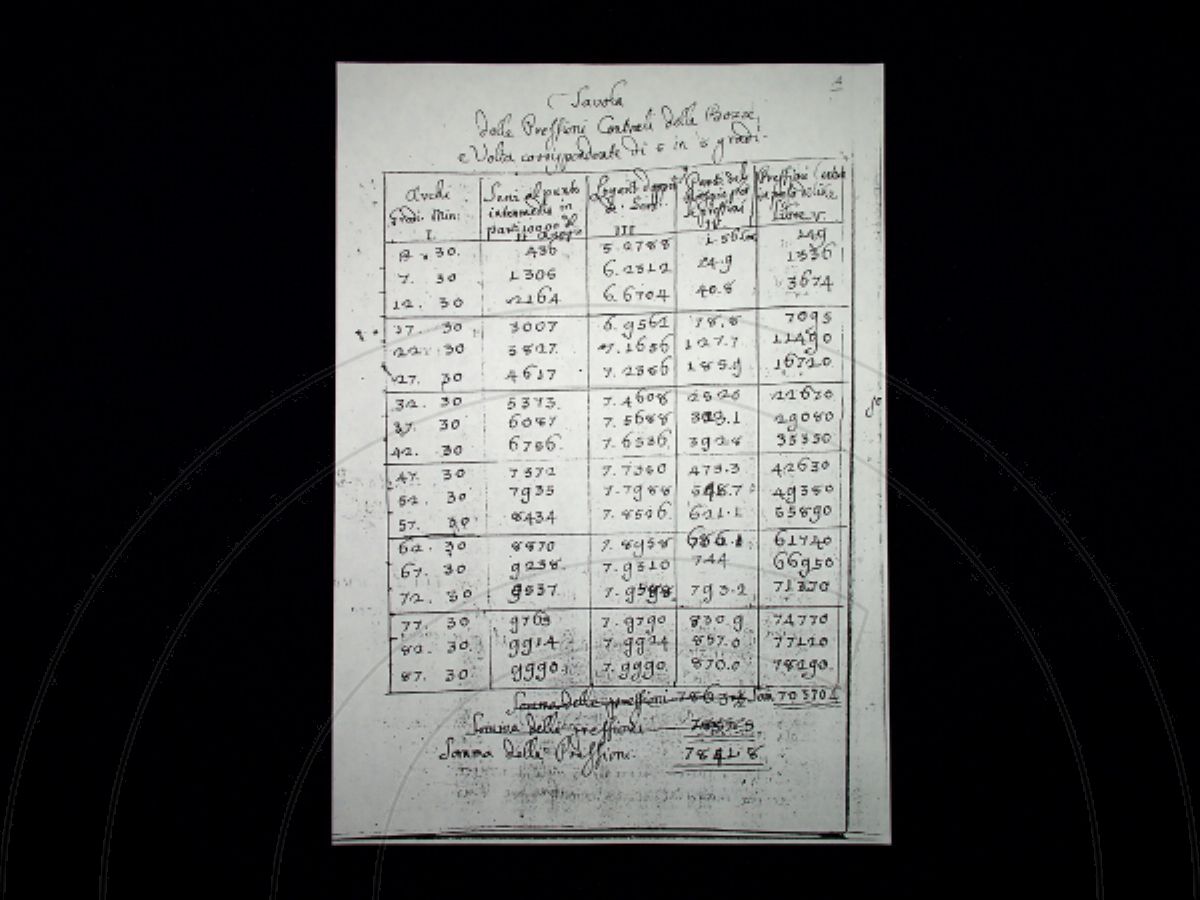 4
Tavola
delle Pressioni Centrali della Bozze,
e Volta corrispondente di 5 in 5 gradi.
Archi
Gradi. Min:
I.
Seni al punto
intermedio in
parti 10000 del
Raggio
II
Logarit. doppi
de' Seni.
III
Parti del
Raggio per
le Pressioni
IV
Pressioni
Libre V.
2. 30. 436 5.2788 249
7. 30 1306 6.2312 14.9 1336
12. 30 2164 6.6704 40.8 3674
17. 30 3007 6.9561 78.8 7095
22. 30 3827 7.1656 127.7 11490
27. 30 4617 7.2386 185.9 16720
32. 30 5373 7.4608 252.0 22670
37. 30 6087 7.5688 323.1 29080
42. 30 6756. 7.6536 392.8 35350
47. 30 7372 7.7350 473.3 42630
52. 30 7935 7.7988 548.7 49380
57. 30 8434 7.8516 621.1 55890
62. 30 8870 7.8958 686.1 61740
67. 30 9238. 7.9310 744 66950
72. 30 9537 7.9598 793.2 71370
77. 30 9763 7.9790 830.9 74770
82. 30 9914 7.9924 857.0 77120
87. 30. 9990. 7.9990. 870.0 78290.
Somma delle pressioni 703701
Somma delle Pressioni
Somma delle Pressioni. 7841.8